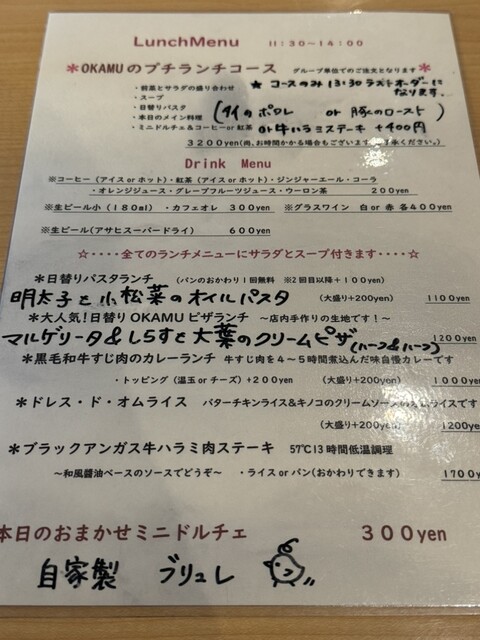 LunchMenu 11:30~14:00
*OKAMUのプチランチコース グループ単位でのご注文となります
・前菜とサラダの盛り合わせ ★ コースのみ13:30ラストオーダーに
・スープ なります。
・日替りパスタ
・本日のメイン料理 (タイのポワレ or 豚のロースト)
・ミニドルチェ&コーヒーor 紅茶 or牛ハラミステーキ +400円
3200yen(尚、お時間かかる場合もございます 了承ください。)
Drink Menu
※コーヒー(アイスorホット)・紅茶(アイスorホット)・ジンジャーエール・コーラ
・オレンジジュース・グレープフルーツジュース・ウーロン茶 200yen
※生ビール小(180ml) ・カフェオレ 300yen ※グラスワイン 白or赤 各400yen
※生ビール(アサヒスーパードライ) 600yen
☆・・・・全てのランチメニューにサラダとスープ付きます・・・・☆
*日替りパスタランチ (パンのおかわり1回無料 ※2回目以降+100yen)
明太子と小松菜のオイルパスタ (大盛り+200yen) 1100yen
*大人気!日替りOKAMUピザランチ ~店内手作りの生地です!~
マルゲリータ&しらすと大葉のクリームピザ(ハーフ&ハーフ) 1200yen
*黒毛和牛すじ肉のカレーランチ 牛すじ肉を4~5時間煮込んだ味自慢カレーです
・トッピング(温玉orチーズ)+200yen (大盛り+200yen) 1000yen
*ドレス・ド・オムライス バターチキンライス&キノコのクリームソースのオムライスです
(大盛り+200yen) 1200yen
*ブラックアンガス牛ハラミ肉ステーキ 57℃13時間低温調理
~和風醤油ベースのソースでどうぞ~ ・ライスorパン(おかわりできます) 1700y
本日のおまかせミニドルチェ 300yen
自家製 ブリュレ